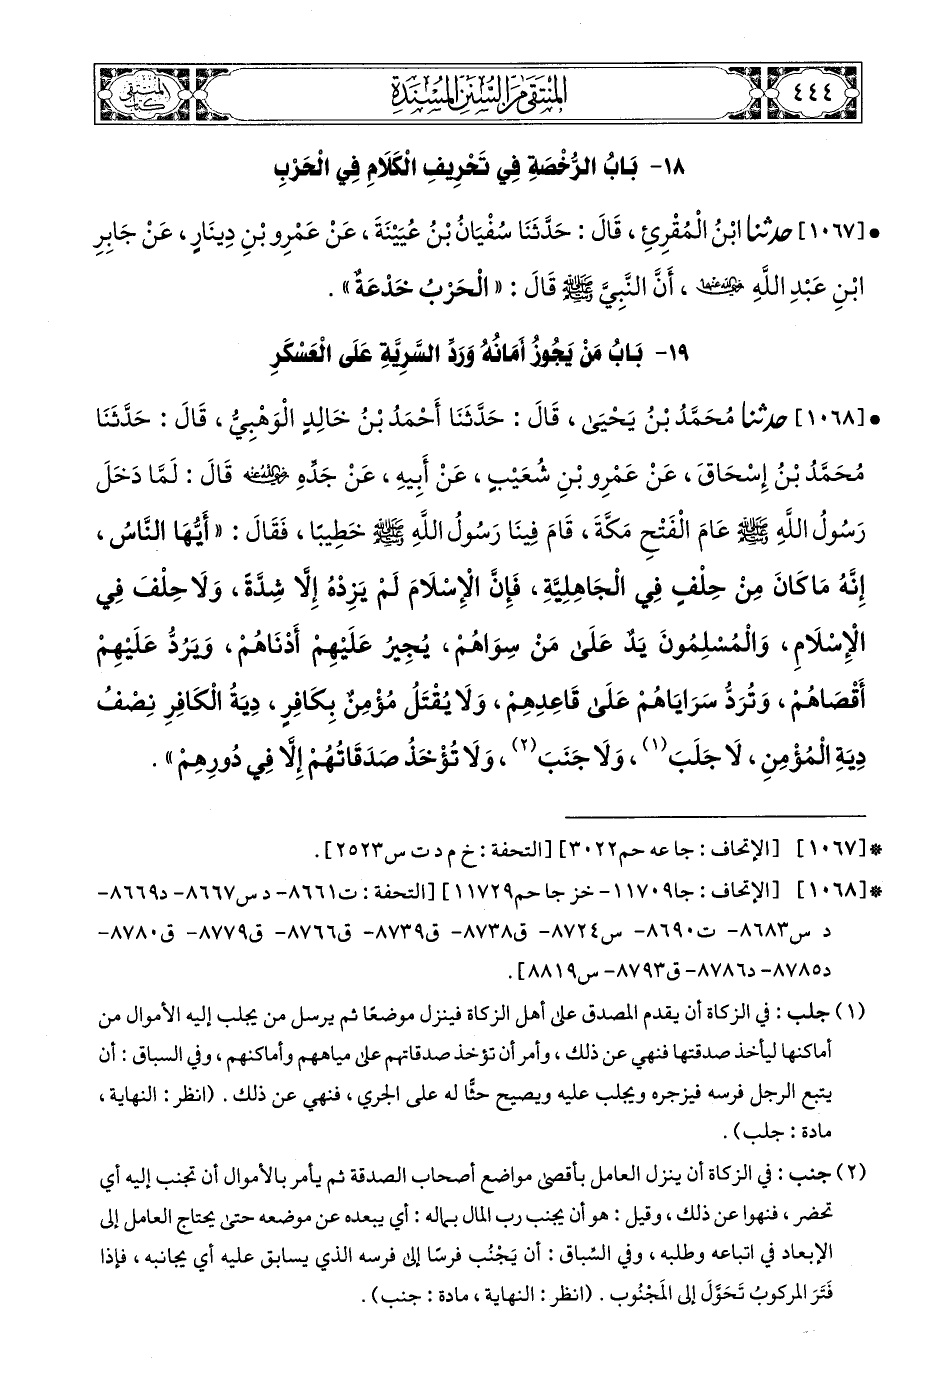 ٤٤٤
المنتقى من السنن المسندة
كتاب المنتقى
١٨- بَابُ الرُّخْصَةِ فِي تَحْرِيفِ الْكَلَامِ فِي الْحَرْبِ
• [١٠٦٧] حدثنا ابْنُ الْمُقْرِئِ ، قَالَ : حَدَّثَنَا سُفْيَانُ بْنُ عُيَيْنَةَ ، عَنْ عَمْرِو بْنِ دِينَارٍ ، عَنْ جَابِرِ
ابْنِ عَبْدِ اللَّهِ رضي الله عنهما ، أَنَّ النَّبِيَّ ﷺ قَالَ : « الْحَرْبُ خَدْعَةٌ » .
١٩- بَابُ مَنْ يَجُوزُ أَمَانُهُ وَرَدِّ السَّرِيَّةِ عَلَى الْعَسْكَرِ
• [١٠٦٨] حدثنا مُحَمَّدُ بْنُ يَحْيَى ، قَالَ : حَدَّثَنَا أَحْمَدُ بْنُ خَالِدٍ الْوَهْبِيُّ ، قَالَ : حَدَّثَنَا
مُحَمَّدُ بْنُ إِسْحَاقَ ، عَنْ عَمْرِو بْنِ شُعَيْبٍ ، عَنْ أَبِيهِ ، عَنْ جَدِّهِ رضي الله عنه قَالَ : لَمَّا دَخَلَ
رَسُولُ اللَّهِ ﷺ عَامَ الْفَتْحِ مَكَّةَ ، قَامَ فِينَا رَسُولُ اللَّهِ ﷺ خَطِيبًا ، فَقَالَ : « أَيُّهَا النَّاسُ ،
إِنَّهُ مَا كَانَ مِنْ حِلْفٍ فِي الْجَاهِلِيَّةِ ، فَإِنَّ الْإِسْلَامَ لَمْ يَزِدْهُ إِلَّا شِدَّةً ، وَلَا حِلْفَ فِي
الْإِسْلَامِ ، وَالْمُسْلِمُونَ يَدٌ عَلَى مَنْ سِوَاهُمْ ، يُجِيرُ عَلَيْهِمْ أَدْنَاهُمْ ، وَيَرُدُّ عَلَيْهِمْ
أَقْصَاهُمْ ، وَتُرَدُّ سَرَايَاهُمْ عَلَى قَاعِدِهِمْ ، وَلَا يُقْتَلُ مُؤْمِنٌ بِكَافِرٍ ، دِيَةُ الْكَافِرِ نِصْفُ
دِيَةِ الْمُؤْمِنِ ، لَا جَلَبَ (١) ، وَلَا جَنَبَ (٢) ، وَلَا تُؤْخَذُ صَدَقَاتُهُمْ إِلَّا فِي دُورِهِمْ » .
* [١٠٦٧] [الإتحاف : جا عه حم ٣٠٢٢] [التحفة : خ م د ت س ٢٥٢٣] .
* [١٠٦٨] [الإتحاف : جا ١١٧٠٩- خز جا حم ١١٧٢٩] [التحفة : ت ٨٦٦١- د س ٨٦٦٧- د ٨٦٦٩-
د س ٨٦٨٣- ت ٨٦٩٠- س ٨٧٢٤- ق ٨٧٣٨- ق ٨٧٣٩- ق ٨٧٦٦- ق ٨٧٧٩- ق ٨٧٨٠-
د ٨٧٨٥- د ٨٧٨٦- ق ٨٧٩٣- س ٨٨١٩] .
(١) جلب : في الزكاة أن يقدم المصدق على أهل الزكاة فينزل موضعًا ثم يرسل من يجلب إليه الأموال من
أماكنها ليأخذ صدقتها فنهي عن ذلك ، وأمر أن تؤخذ صدقاتهم على مياههم وأماكنهم ، وفي السباق : أن
يتبع الرجل فرسه فيزجره ويجلب عليه ويصيح حثًّا له على الجري ، فنهي عن ذلك . (انظر : النهاية ،
مادة : جلب) .
(٢) جنب : في الزكاة أن ينزل العامل بأقصى مواضع أصحاب الصدقة ثم يأمر بالأموال أن تجنب إليه أي
تحضر ، فنهوا عن ذلك ، وقيل : هو أن يجنب رب المال بماله : أي يبعده عن موضعه حتى يحتاج العامل إلى
الإبعاد في اتباعه وطلبه ، وفي السِّباق : أن يَجْنُب فرسًا إلى فرسه الذي يسابق عليه أي يجانبه ، فإذا
فَتَرَ المركوبُ تَحَوَّلَ إلى المَجْنُوب . (انظر : النهاية ، مادة : جنب) .